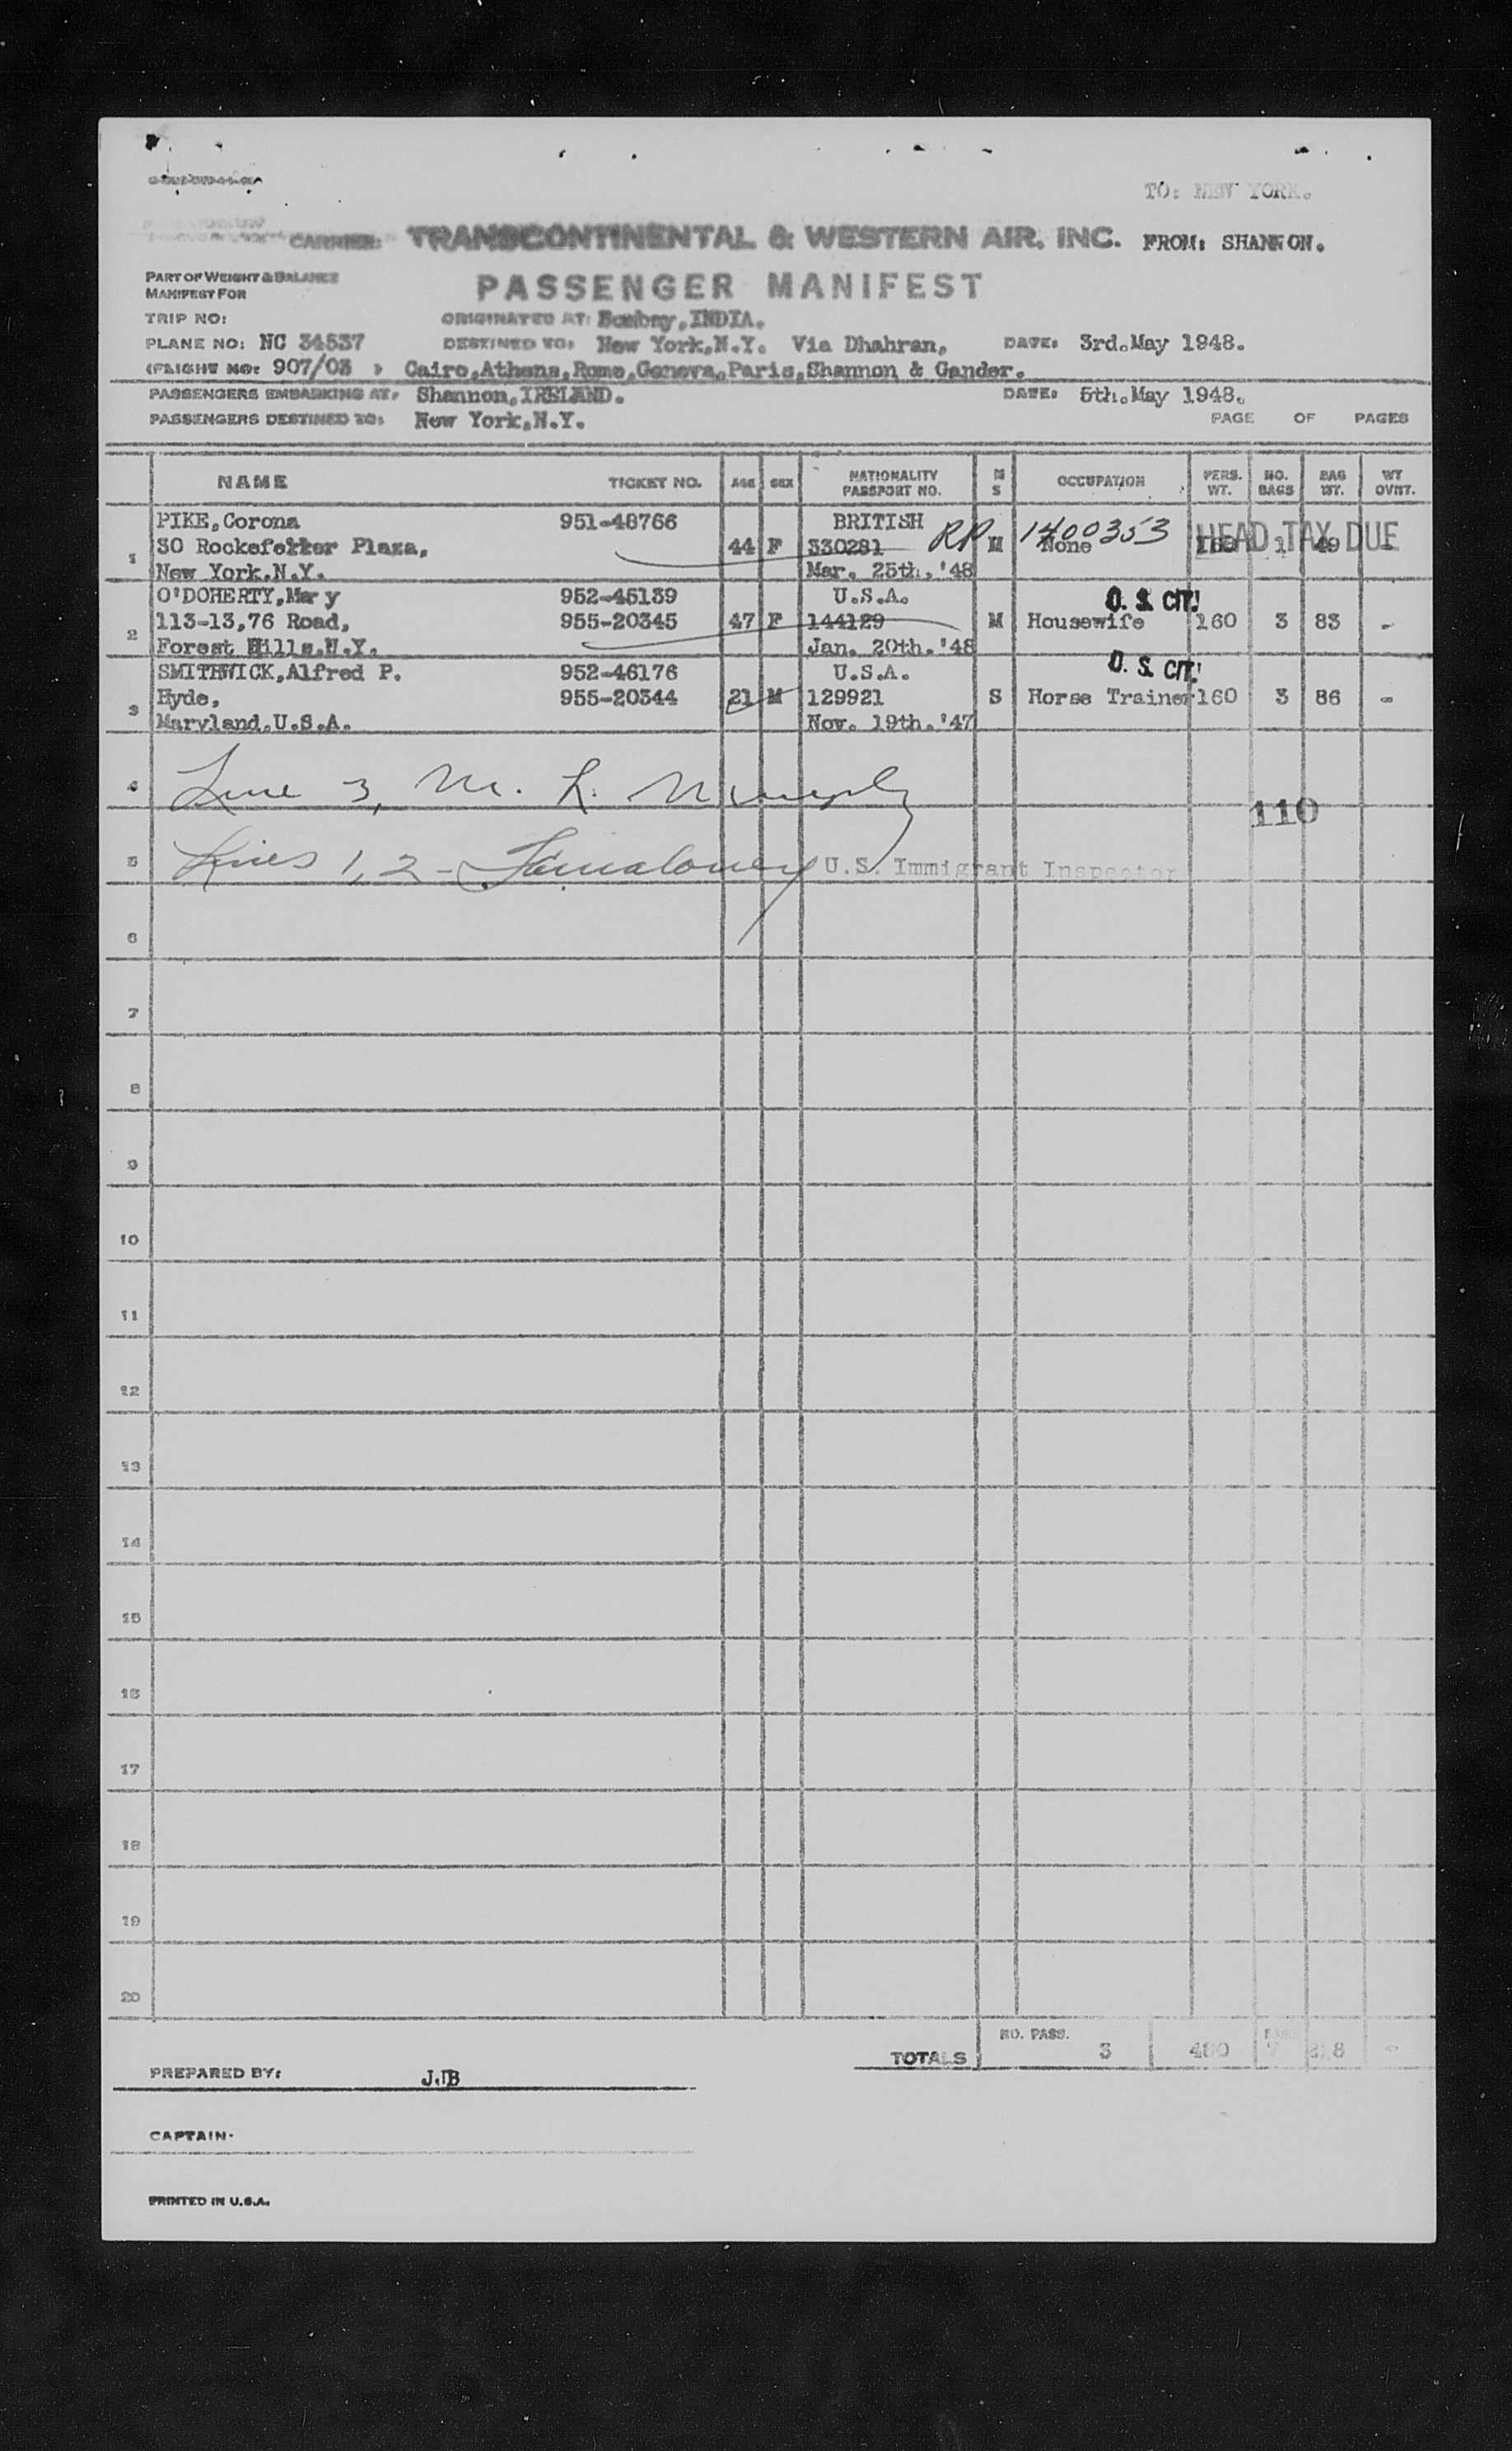 TO: NEW YORK.
CARRIER: TRANSCONTINENTAL & WESTERN AIR, INC. FROM: SHANNON.
PART OF WEIGHT & BALANCE
MANIFEST FOR
PASSENGER MANIFEST
TRIP NO: ORIGINATED AT: Bombay, INDIA.
PLANE NO: NC 34537 DESTINED TO: New York, N.Y. Via Dhahran, DATE: 3rd. May 1948.
(FLIGHT NO: 907/03 ) Cairo, Athens, Rome, Geneva, Paris, Shannon & Gander.
PASSENGERS EMBARKING AT: Shannon, IRELAND. DATE: 5th. May 1948.
PASSENGERS DESTINED TO: New York, N.Y. PAGE OF PAGES
NAME TICKET NO. AGE SEX NATIONALITY PASSPORT NO. M S OCCUPATION PERS. WT. NO. BAGS BAG WT. WT OVNT.
PIKE, Corona 951-48766 BRITISH
1 30 Rockefetter Plaza, 44 F 330281 RP M 1400353 None 160 1 49 - HEAD TAX DUE
New York.N.Y. Mar. 25th, '48
O'DOHERTY, Mary 952-45139 U.S.A. U. S. CIT.
2 113-13,76 Road, 955-20345 47 F 144129 M Housewife 160 3 83 -
Forest Hills.N.Y. Jan. 20th. '48
SMITHWICK, Alfred P. 952-46176 U.S.A. U. S. CIT.
3 Hyde, 955-20344 21 M 129921 S Horse Trainer 160 3 86 -
Maryland, U.S.A. Nov. 19th. '47
4 Line 3, M. L. Murphy
110
5 Lines 1, 2 - U.S. Immigrant Inspector
6
7
8
9
10
11
12
13
14
15
16
17
18
19
20
TOTALS NO. PASS. 3 480 7 218 -
PREPARED BY: JJB
CAPTAIN.
PRINTED IN U.S.A.